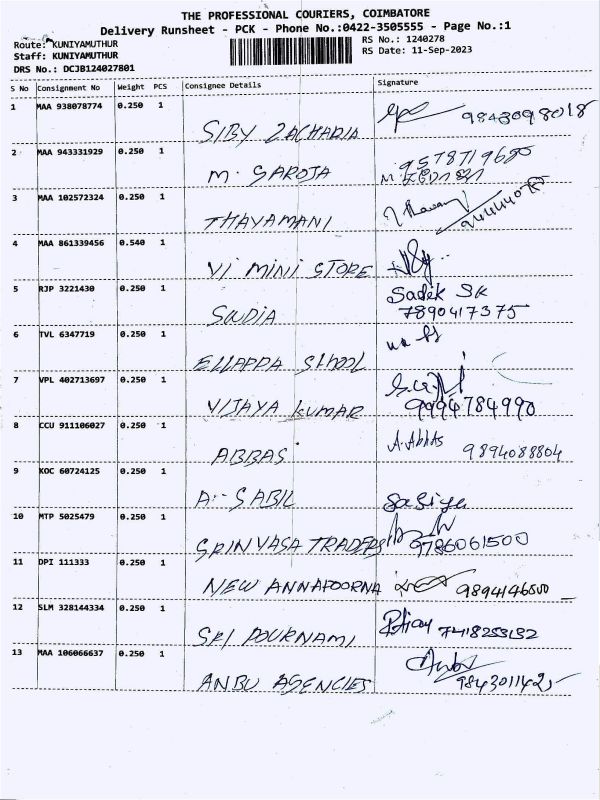 THE PROFESSIONAL COURIERS, COIMBATORE
Delivery Runsheet - PCK - Phone No.:0422-3505555 - Page No.:1
Route: KUNIYAMUTHUR
RS No.: 1240278
Staff: KUNIYAMUTHUR
RS Date: 11-Sep-2023
DRS No.: DCJB124027801
S No Consignment No Weight PCS Consignee Details Signature
1 MAA 938078774 0.250 1
SIBY ZACHARIA 9843098018
2 MAA 943331929 0.250 1
M. SAROJA 9578719680
3 MAA 102572324 0.250 1
THAYAMANI
4 MAA 861339456 0.540 1
VI MINI STORE
5 RJP 3221430 0.250 1
Sadik SK
7890417375
6 TVL 6347719 0.250 1
ELLAPPA
7 VPL 402713697 0.250 1
VIJAYA KUMAR 9994784990
8 CCU 911106027 0.250 1
ABBAS A. Abbas 9894088804
9 KOC 60724125 0.250 1
A:- SABIL
10 MTP 5025479 0.250 1
SRINVASA TRADERS 9786061500
11 DPI 111333 0.250 1
NEW ANNAPOORNA 9894146500
12 SLM 328144334 0.250 1
SRI POURNAMI 7418253132
13 MAA 106066637 0.250 1
ANBU AGENCIES 9843011425